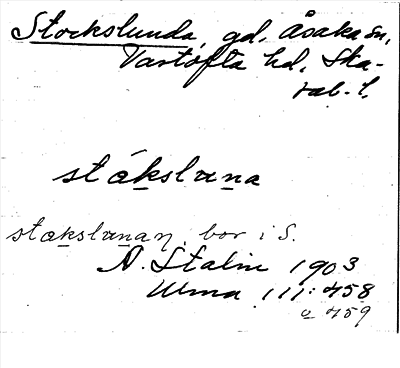 Stockslunda, gd, Åsaka sn,
Vartofta hd, Ska-
rab. l.
stákslωna
stakslωnan, bor i S.
A. Stalin 1903
Ulma 111:458
o 459